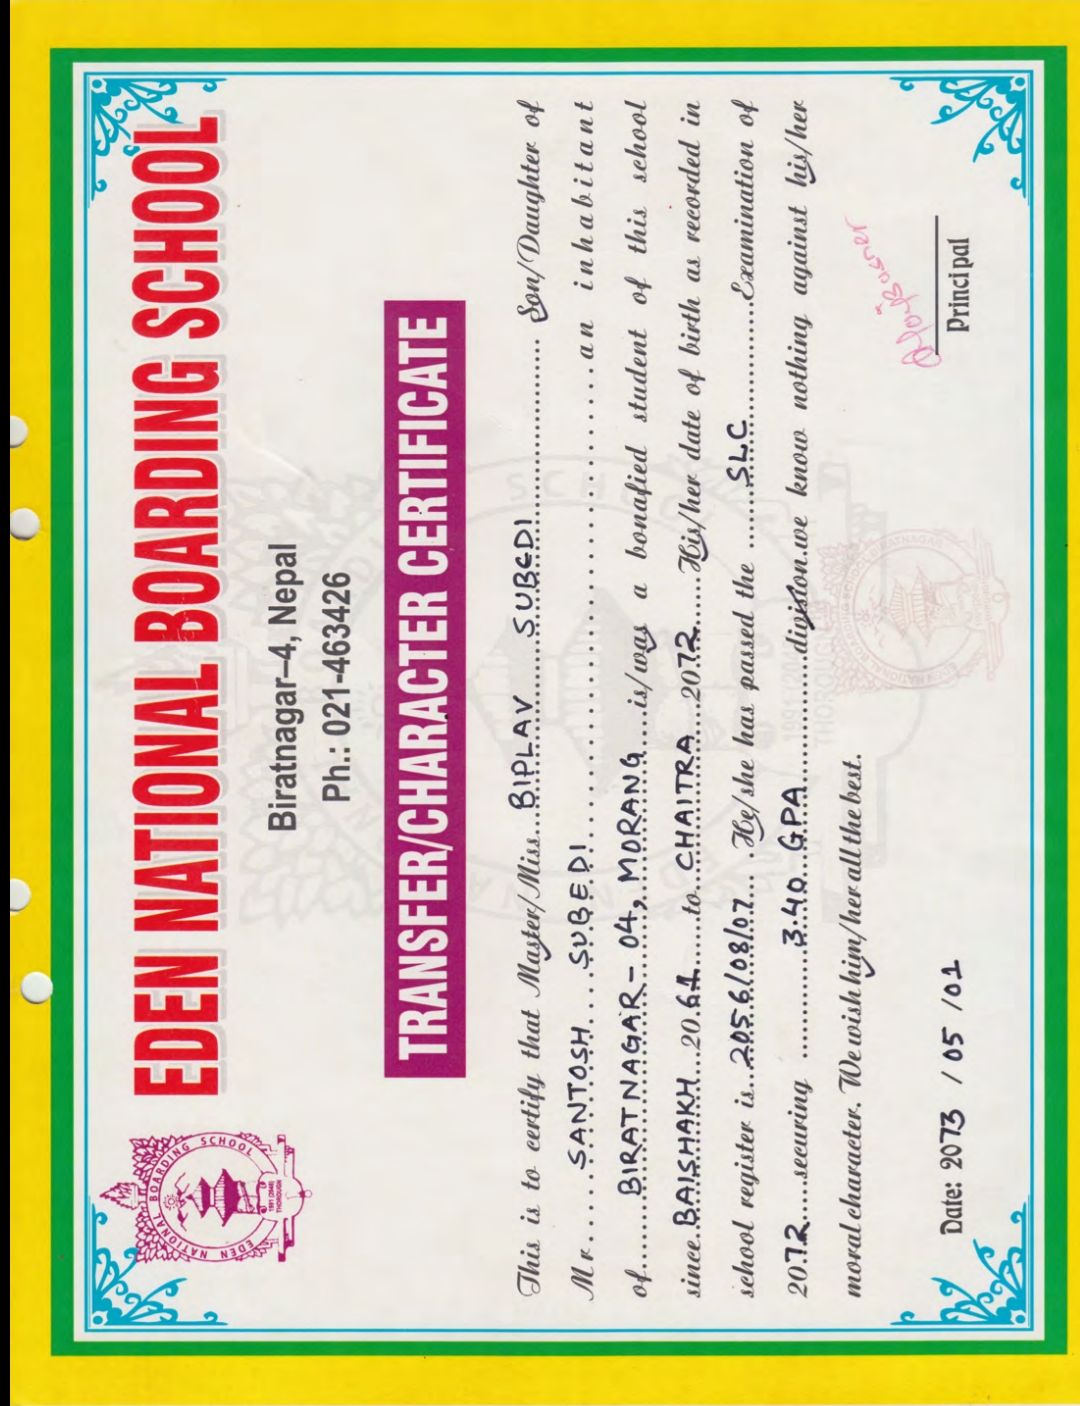 EDEN NATIONAL BOARDING SCHOOL
Biratnagar–4, Nepal
Ph.: 021-463426
EDEN NATIONAL BOARDING SCHOOL
1991 (2048)
THOROUGH
TRANSFER/CHARACTER CERTIFICATE
This is to certify that Master/Miss...BIPLAV SUBEDI................... Son/Daughter of
Mr.....SANTOSH....SUBEDI............................................an inhabitant
of.........BIRATNAGAR-04, MORANG....is/was a bonafied student of this school
since..BAISHAKH...2061......to..CHAITRA...2072......His/her date of birth as recorded in
school register is...2056/08/07.... .He/she has passed the ........SLC............Examination of
2072.....securing ..............3.40..GPA..............division.we know nothing against his/her
moral character. We wish him/her all the best.
Date: 2073 /05 /01
Principal